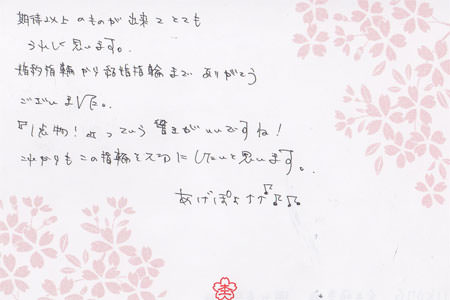 期待以上のものが出来てとても
うれしく思います。
婚約指輪から結婚指輪まで ありがとう
ございました。
"1点物！"って いう 響きがいいですね！
これからもこの指輪を大切にしたいと思います。
あげぽよ↑↑♫♫♫